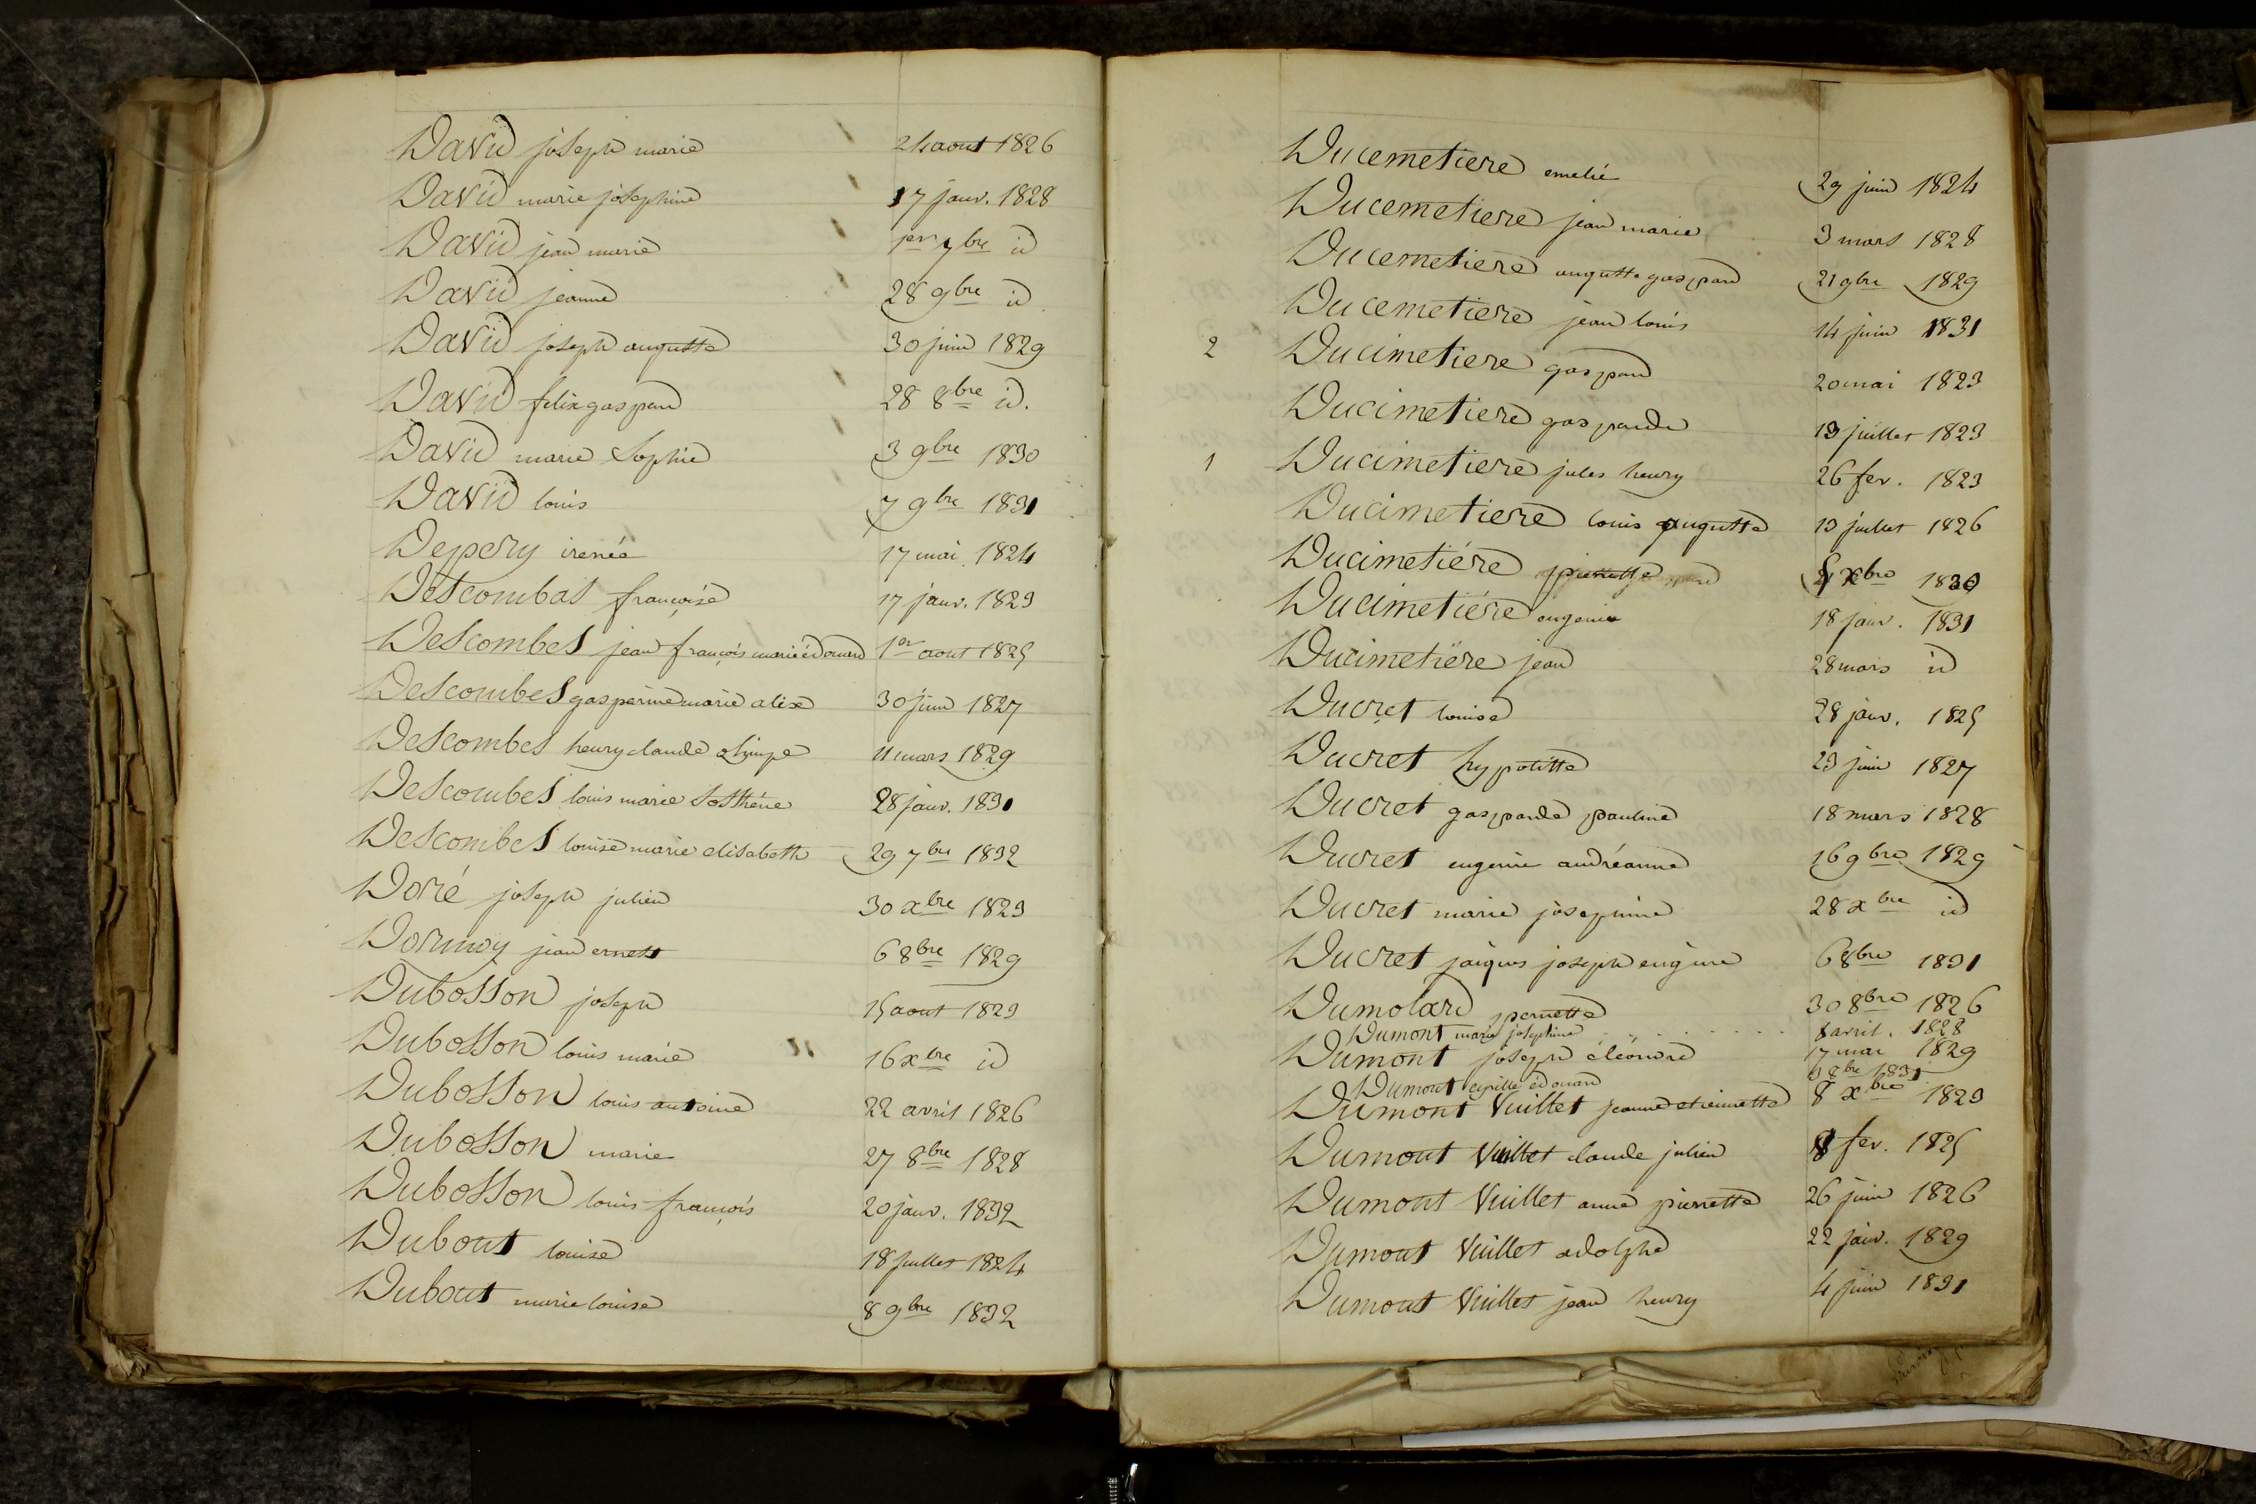 David joseph marie 24 aout 1826
David marie josephine 17 janv. 1828
David jean marie 1er 7bre id
David jeanne 28 9bre id
David joseph auguste 30 juin 1829
David felix gaspard 28 8bre id.
David marie Sophie 3 9bre 1830
David louis 7 9bre 1831
Depery irenée 17 mai 1824
Descombas françoise 17 janv. 1823
Descombes jean françois marie édouard 1er aout 1825
Descombes gasparine marie alix 30 juin 1827
Descombes henry claude olimpe 11 mars 1829
Descombes louis marie Sosthène 28 janv. 1831
Descombes louise marie elisabeth 29 7bre 1832
Doré joseph julien 30 xbre 1823
Dormoy jean ernest 6 8bre 1829
Dubosson joseph 15 aout 1823
Dubosson louis marie 16 xbre id
Dubosson louis antoine 22 avril 1826
Dubosson marie 27 8bre 1828
Dubosson louis françois 20 janv. 1832
Dubout louise 18 juillet 1824
Dubout marie louise 8 9bre 1832
Ducemetiere emelie 29 juin 1824
Ducemetiere jean marie 3 mars 1828
Ducemetiere auguste gaspard 21 9bre 1829
Ducemetiere jean louis 14 juin 1831
2 Ducimetiere gaspard 20 mai 1823
Ducimetiere gasparde 19 juillet 1823
1 Ducimetiere jules henry 26 fev. 1823
Ducimetiere louis auguste 13 juillet 1826
Ducimetiére pierrette xbre 1830
Ducimetiére eugenie 18 janv. 1831
Ducimetiere jean 28 mars id
Ducret louise 28 janv. 1825
Ducret hypolitte 23 juin 1827
Ducret gasparde pauline 18 mars 1828
Ducret eugenie andréanne 16 9bre 1829
Ducret marie josephine 28 xbre id
Ducret jaiques joseph eugene 6 8bre 1831
Dumolard pernette 30 8bre 1826
Dumont marie josephine 8 avril. 1828
Dumont joseph éléonore 17 mai 1829
Dumont cyrille édouard 8bre 1831
Dumont Vuillet jeanne etiennette 8 xbre 1823
Dumont Vuillet claude julien 8 fev. 1825
Dumont Vuillet anne pierrette 26 juin 1826
Dumont Vuillet adolphe 22 janv. 1829
Dumont Vuillet jean henry 4 juin 1831